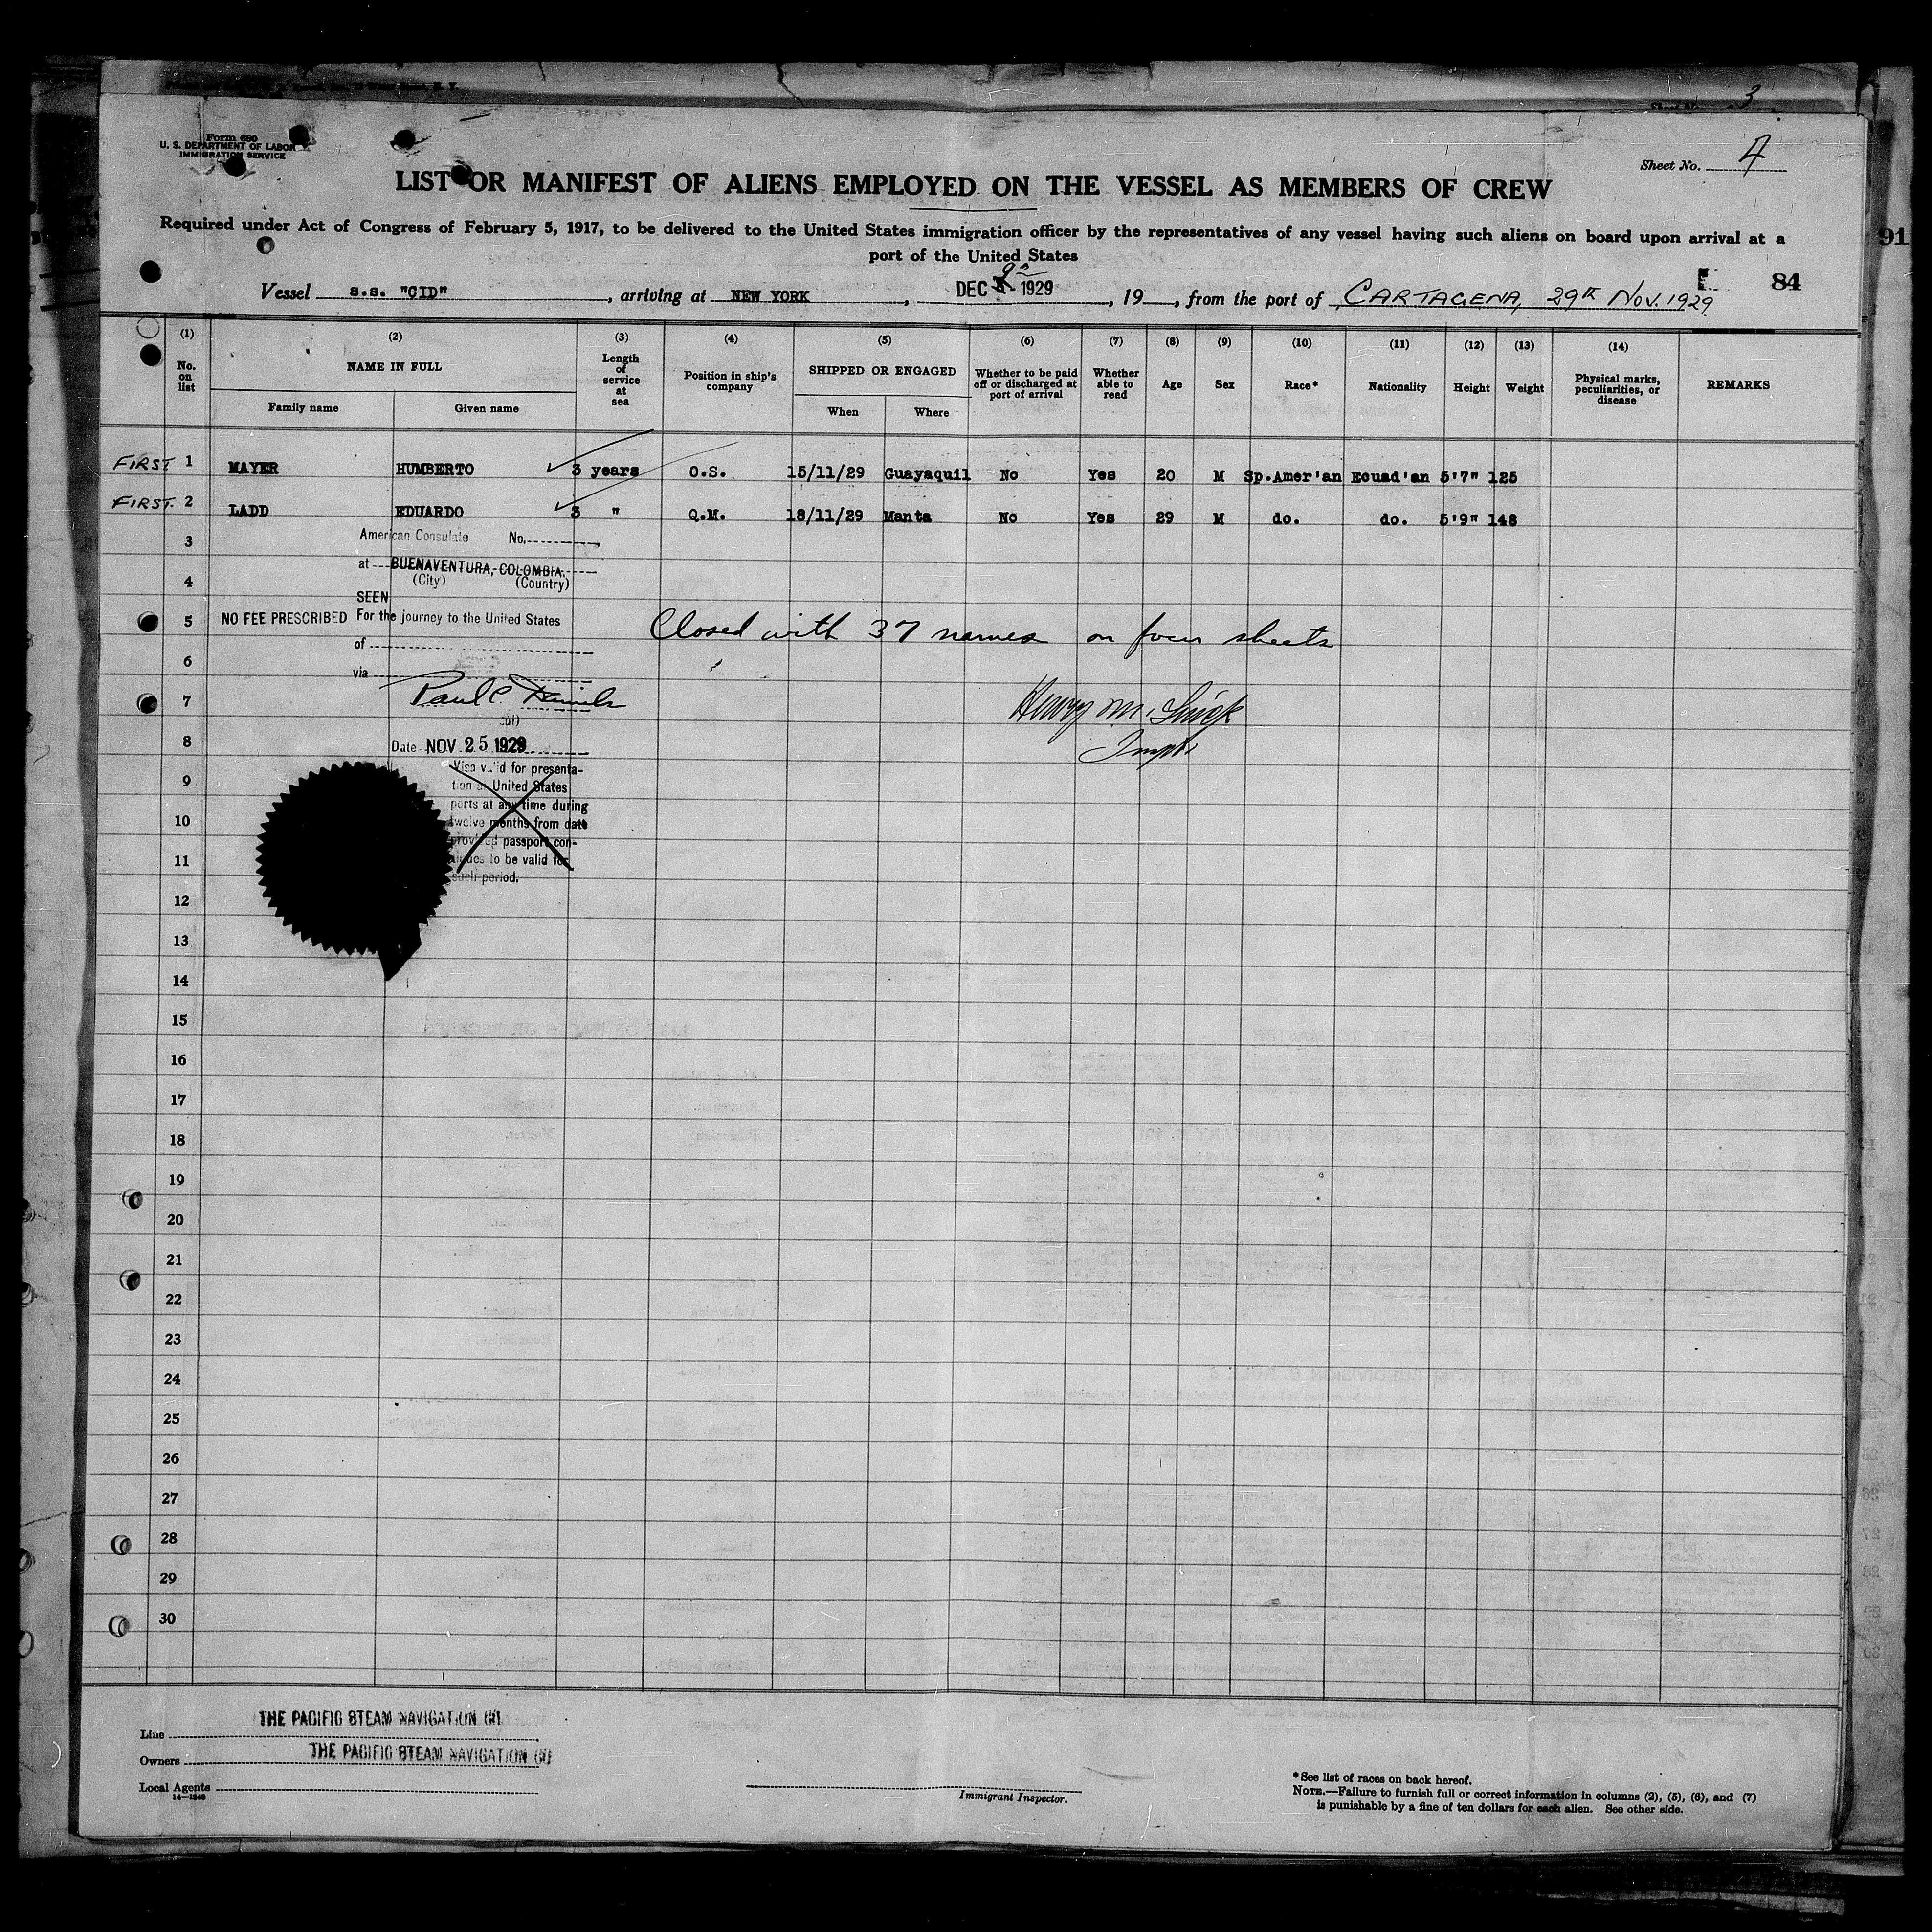 3
Form 680
U. S. DEPARTMENT OF LABOR
IMMIGRATION SERVICE
Sheet No. 4
LIST OR MANIFEST OF ALIENS EMPLOYED ON THE VESSEL AS MEMBERS OF CREW
Required under Act of Congress of February 5, 1917, to be delivered to the United States immigration officer by the representatives of any vessel having such aliens on board upon arrival at a
port of the United States
91
84
Vessel s.s. "CID", arriving at NEW YORK, DEC 9th 1929, 19, from the port of CARTAGENA, 29th NOV. 1929
(1) (2) (3) (4) (5) (6) (7) (8) (9) (10) (11) (12) (13) (14)
No. on list NAME IN FULL Length of service at sea Position in ship's company SHIPPED OR ENGAGED Whether to be paid off or discharged at port of arrival Whether able to read Age Sex Race* Nationality Height Weight Physical marks, peculiarities, or disease REMARKS
Family name Given name When Where
FIRST 1 MAYER HUMBERTO 3 years O.S. 15/11/29 Guayaquil No Yes 20 M Sp.Amer'an Ecuad'an 5'7" 125
FIRST. 2 LADD EDUARDO 3 " Q.M. 18/11/29 Manta No Yes 29 M do. do. 5'9" 148
3 American Consulate No.
at BUENAVENTURA, COLOMBIA.
4 (City) (Country)
SEEN
5 NO FEE PRESCRIBED For the journey to the United States
Closed with 37 names on four sheets
of
6
via
7 Paul C.
Henry M.
8 Date NOV 25 1929
Inspr
Visa valid for presenta-
9 tion at United States
ports at any time during
10 twelve months from date
provided passport con-
11 tinues to be valid for
such period.
12
13
14
15
16
17
18
19
20
21
22
23
24
25
26
27
28
29
30
Line THE PACIFIC STEAM NAVIGATION CO
Owners THE PACIFIC STEAM NAVIGATION CO
Local Agents
14—1240
Immigrant Inspector.
*See list of races on back hereof.
NOTE.—Failure to furnish full or correct information in columns (2), (5), (6), and (7)
is punishable by a fine of ten dollars for each alien. See other side.